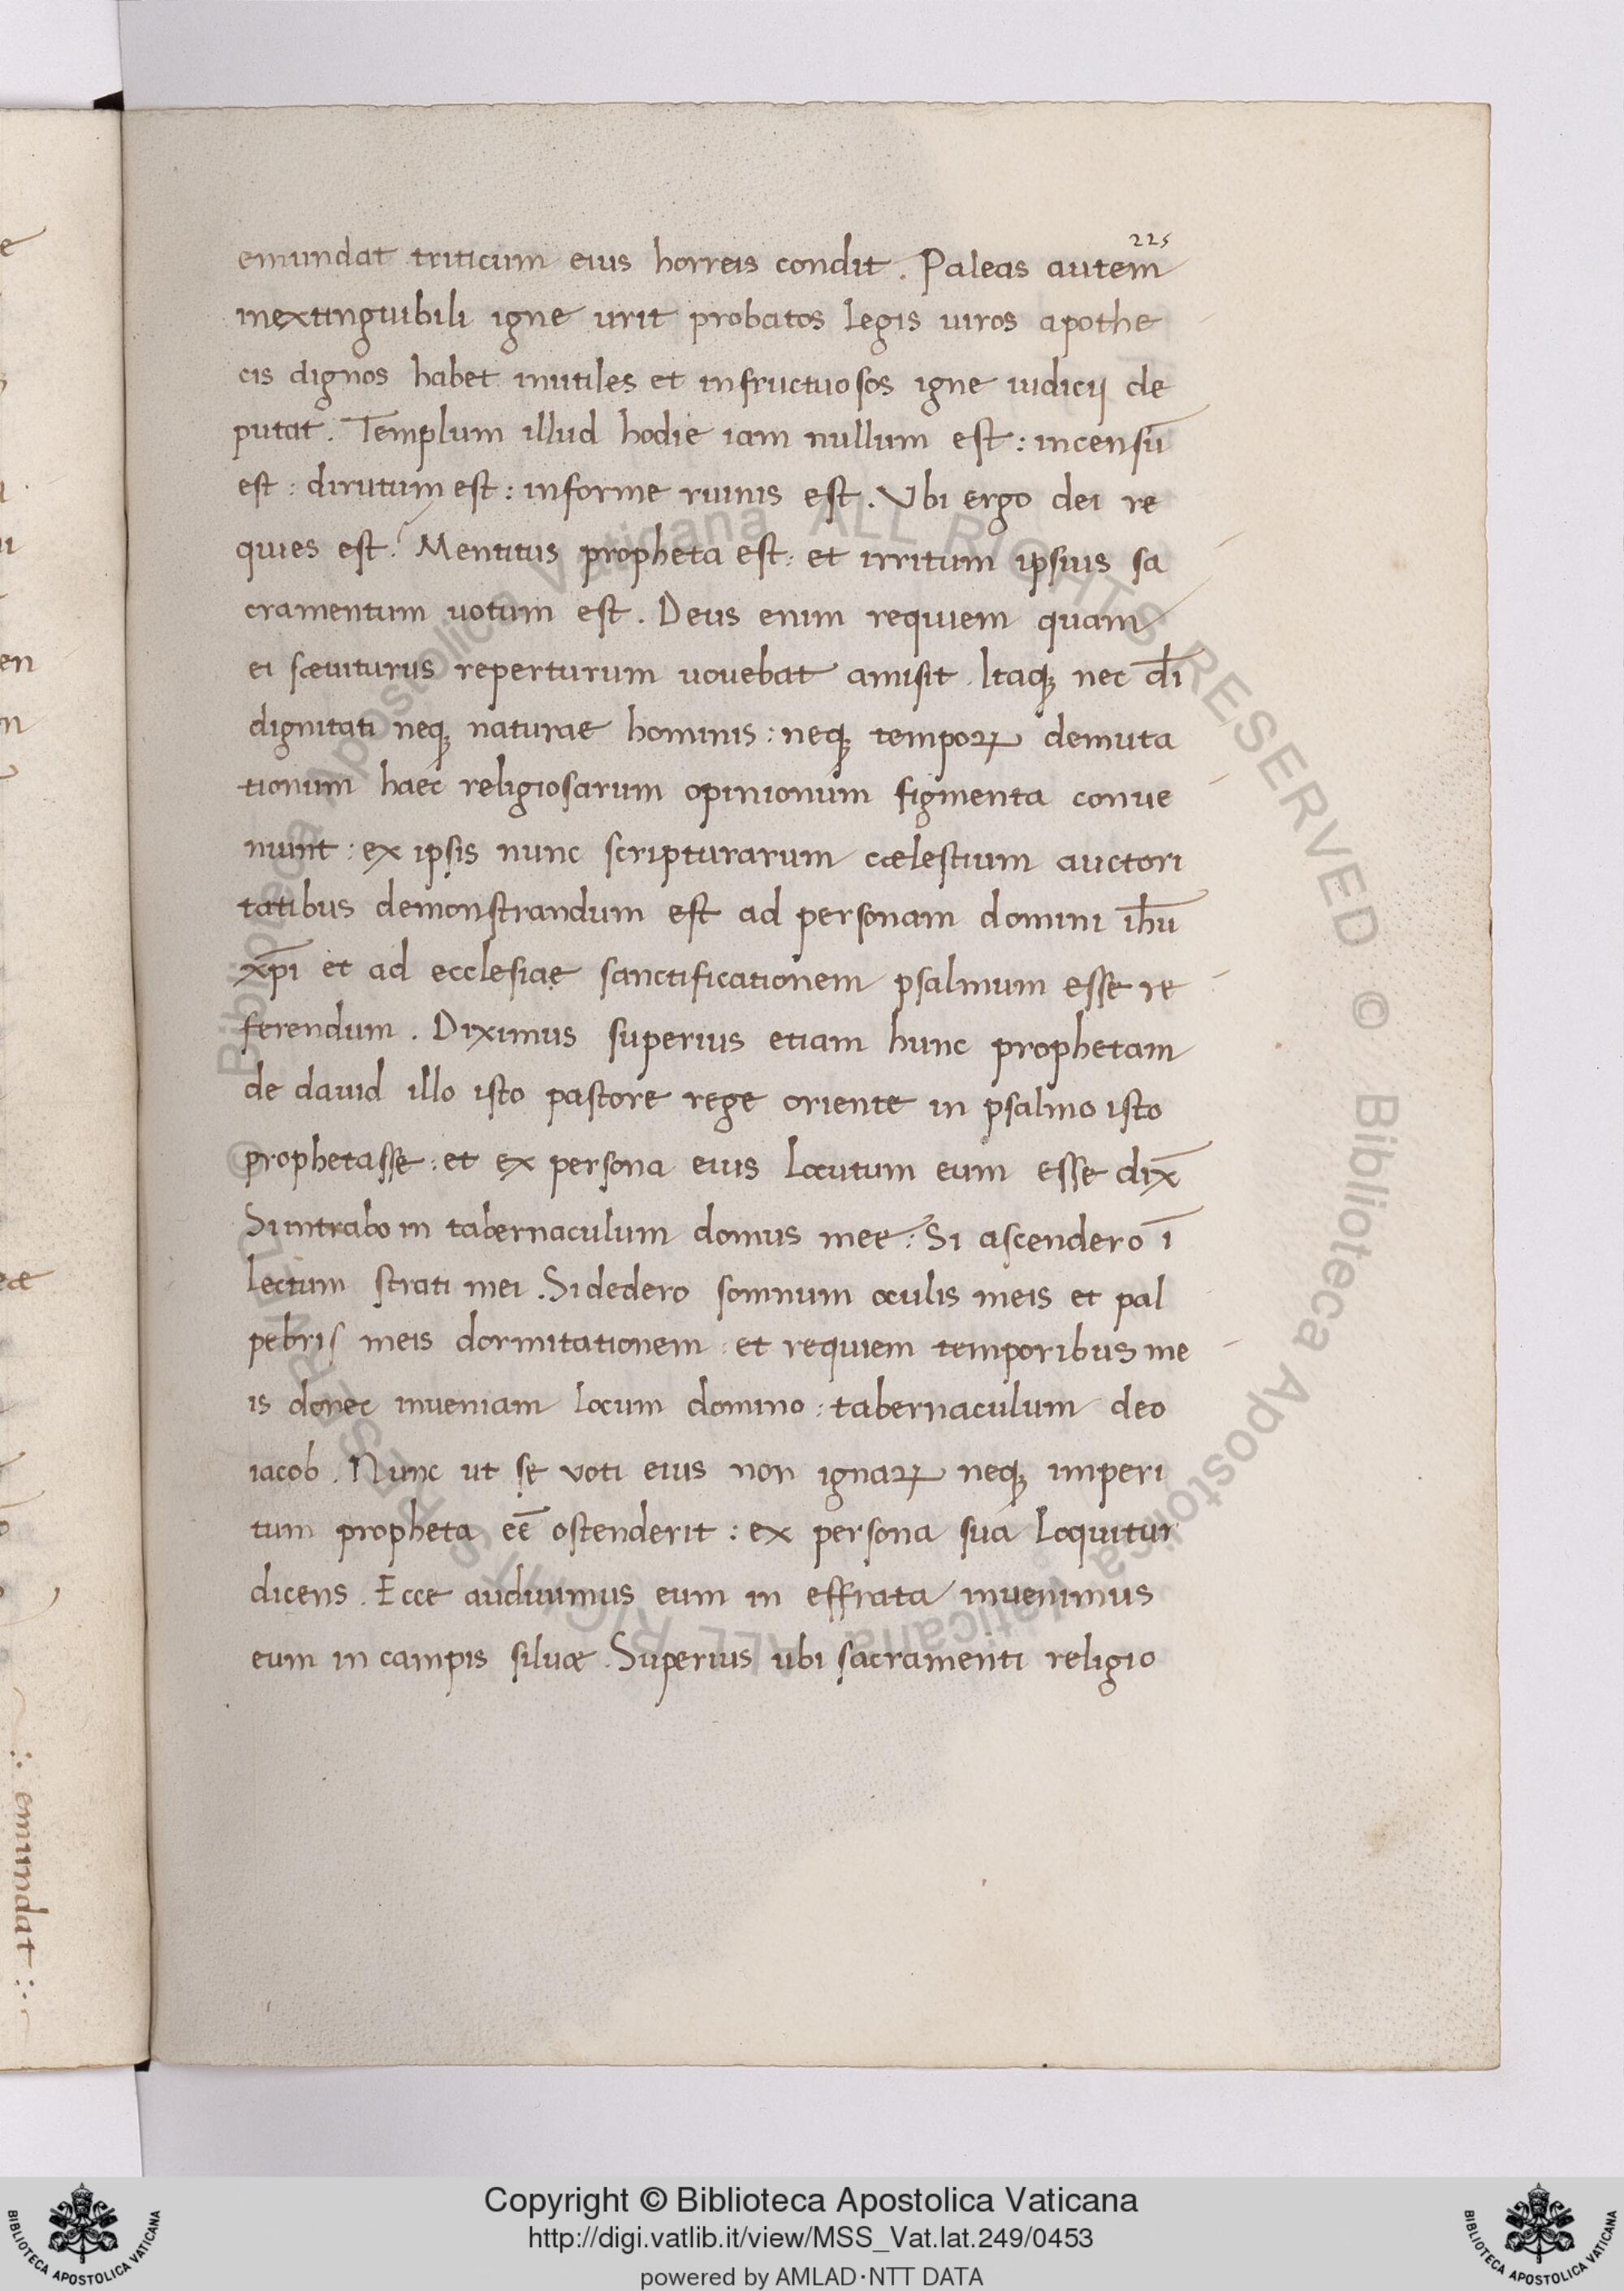 225
emundat triticum eius horreis condit. Paleas autem
inextinguibili igne urit probatos legis uiros apothe
cis dignos habet inutiles et infructuosos igne iudicij de
putat. Templum illud hodie iam nullum est: incensū
est: dirutum est: informe ruinis est. Vbi ergo dei re
quies est? Mentitus propheta est: et irritum ipsius sa
cramentum uotum est. Deus enim requiem quam
ei sæuiturus reperturum uouebat amisit. Itaqꝫ nec dī
dignitati neqꝫ naturae hominis: neqꝫ temporꝝ demuta
tionum haec religiosarum opinionum figmenta conue
niunt: ex ipsis nunc scripturarum cælestium auctori
tatibus demonstrandum est ad personam domini ihū
xp̄i et ad ecclesiae sanctificationem psalmum esse re
ferendum. Diximus superius etiam hunc prophetam
de dauid illo isto pastore rege oriente in psalmo isto
prophetasse: et ex persona eius locutum eum esse dix̄
Si intrabo in tabernaculum domus mee: Si ascendero ī
lectum strati mei. Si dedero somnum oculis meis et pal
pebris meis dormitationem: et requiem temporibus me
is donec inueniam locum domino: tabernaculum deo
iacob. Nunc ut se voti eius non ignarꝝ neqꝫ imperi
tum propheta eē ostenderit: ex persona sua loquitur
dicens. Ecce audiuimus eum in effrata inuenimus
eum in campis siluæ. Superius ubi sacramenti religio
emundat
Copyright © Biblioteca Apostolica Vaticana
http://digi.vatlib.it/view/MSS_Vat.lat.249/0453
powered by AMLAD·NTT DATA
BIBLIOTECA APOSTOLICA VATICANA
BIBLIOTECA APOSTOLICA VATICANA
© Biblioteca Apostolica Vaticana ALL RIGHTS RESERVED © Biblioteca Apostolica Vaticana ALL RIGHTS RESERVED